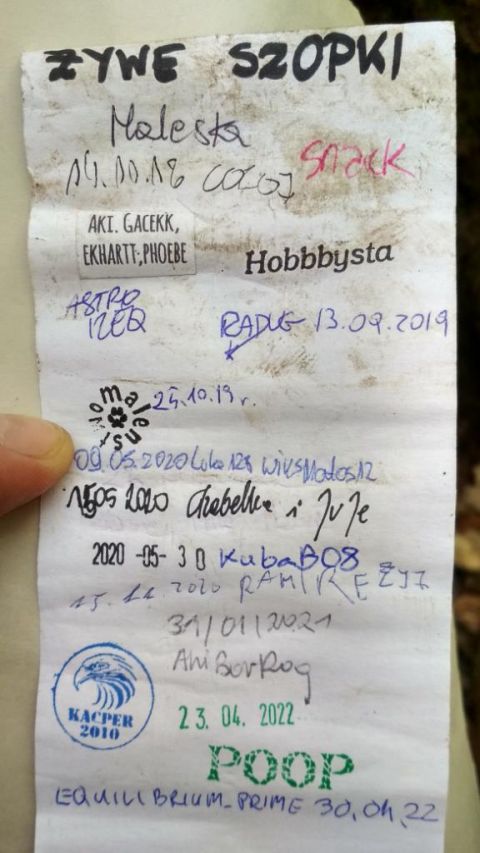 ŻYWE SZOPKI
Maleska
14.10.18
SNACK
AKI. GACEKK,
EKHARTT:,PHOEBE
Hobbbysta
ASTRO
13.09.2019
25.10.19r.
malensto
09.05.2020 Luke128 WiksMatos12
1505 2020 Chabelka i JuJe
2020 -05- 30 KubaB08
15.11.2020 RAMIREZ77
31/01/2021
AniBorRog
KACPER
2010
23. 04. 2022
POOP
EQUILIBRIUM_PRIME 30.04.22